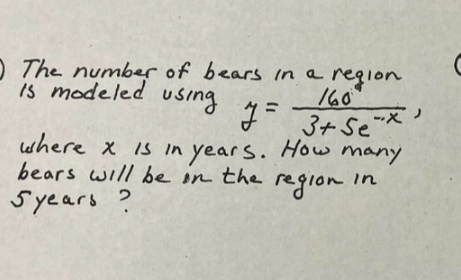 ) The number of bears in a region
is modeled using y = 160 / (3+5e^-x) ,
where x is in years. How many
bears will be in the region in
5 years ?